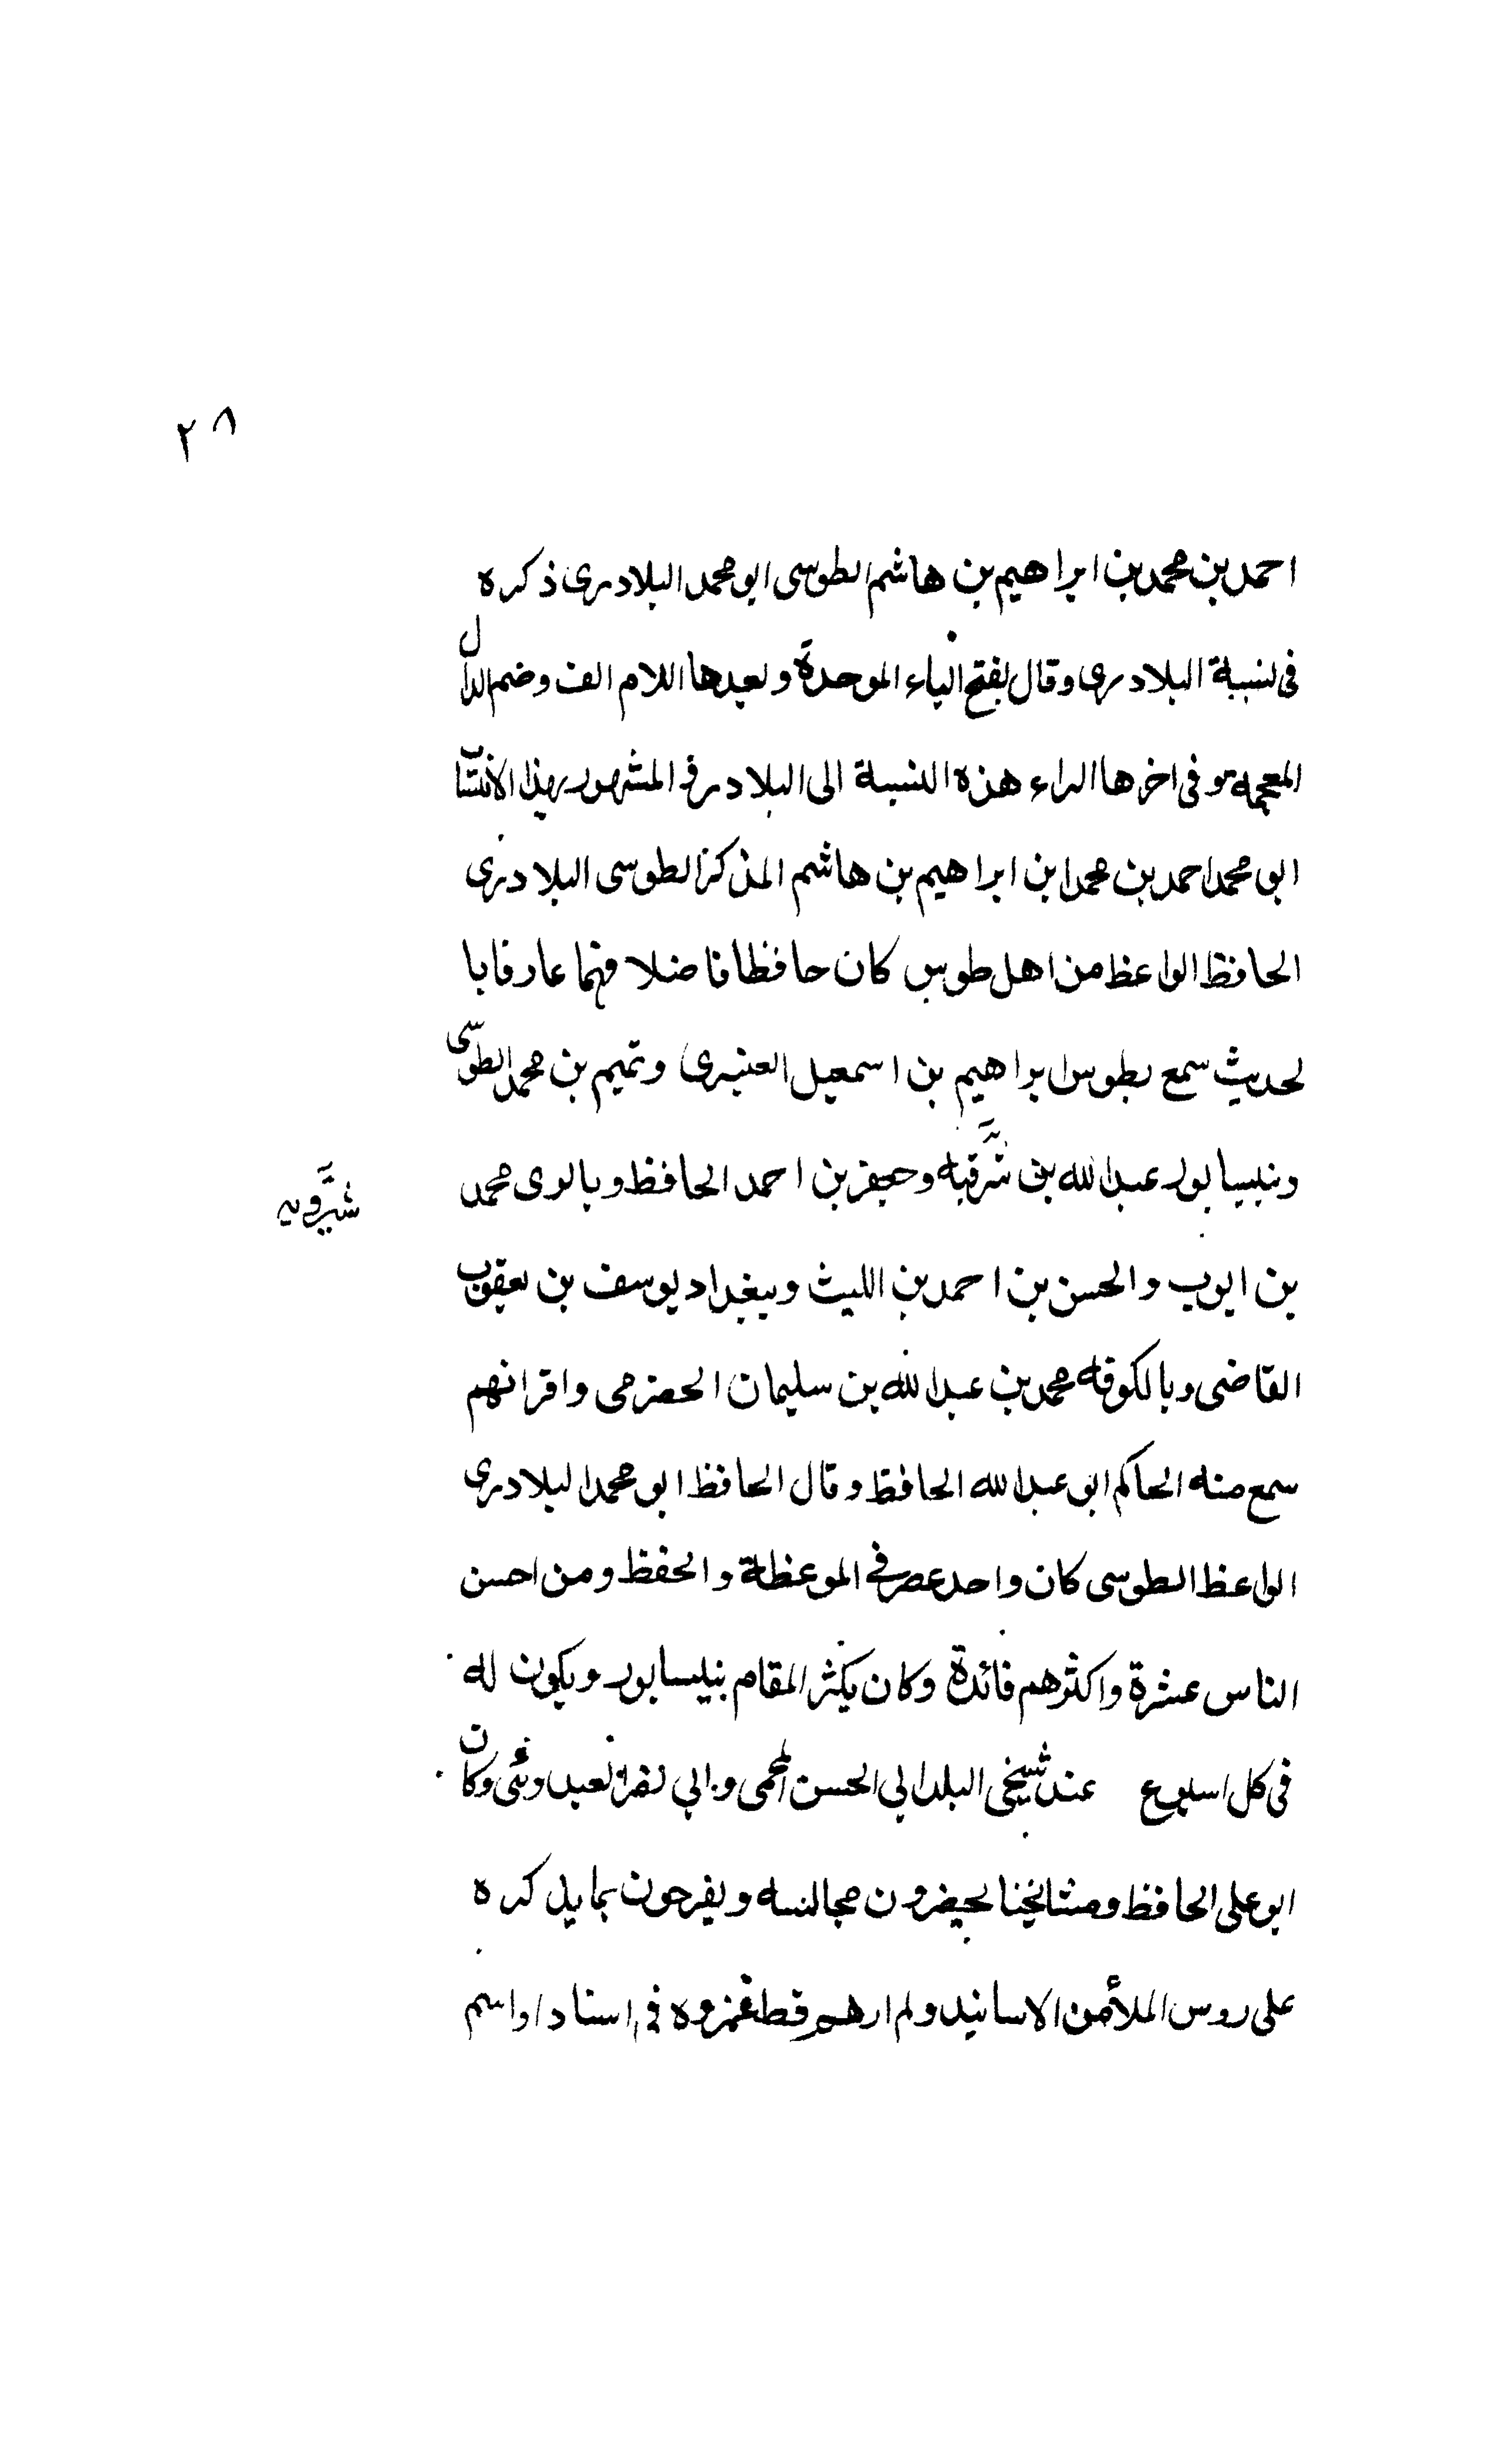 ٢٨
احمد بن محمد بن ابراهيم بن هاشم الطوسى ابو محمد البلادرى ذكره
فى نسبة البلادرى وقال بفتح الباء الموحدة وبعدها اللام الف وضم الدال
المعجمة وفى اخرها الراء هذه النسبة الى البلادر والمشهور بهذا الانتساب
ابو محمد احمد بن محمد ابن ابراهيم بن هاشم المذكر الطوسى البلاذرى
الحافظ الواعظ من اهل طوس كان حافظا فاضلا فهما عارفا با
لحديث سمع بطوس ابراهيم بن اسمعيل العنبرى وتميم بن محمد الطوسى
وبنيسابور عبد الله بن شرقيه وجعفر بن احمد الحافظ وبالرى محمد
شيرويه
بن ايوب والحسن بن احمد بن الليث وببغداد يوسف بن يعقوب
القاضى وبالكوفه محمد بن عبد الله بن سليمان الحضرمى واقرانهم
سمع منه الحاكم ابو عبد الله الحافظ وقال الحافظ ابو محمد البلادرى
الواعظ الطوسى كان واحد عصره فى الموعظة والحفظ ومن احسن
الناس عشرة واكثرهم فائدة وكان يكثر المقام بنيسابور ويكون له
فى كل اسبوع عند شيخى البلد ابي الحسن المحمى وابي نصر وكان
ابو على الحافظ ومشائخنا يحضرون مجالسه ويفرحون بما يذكره
على روس الملأ من الاسانيد ولم ارهم قط غمزوه فى اسناد او اسم